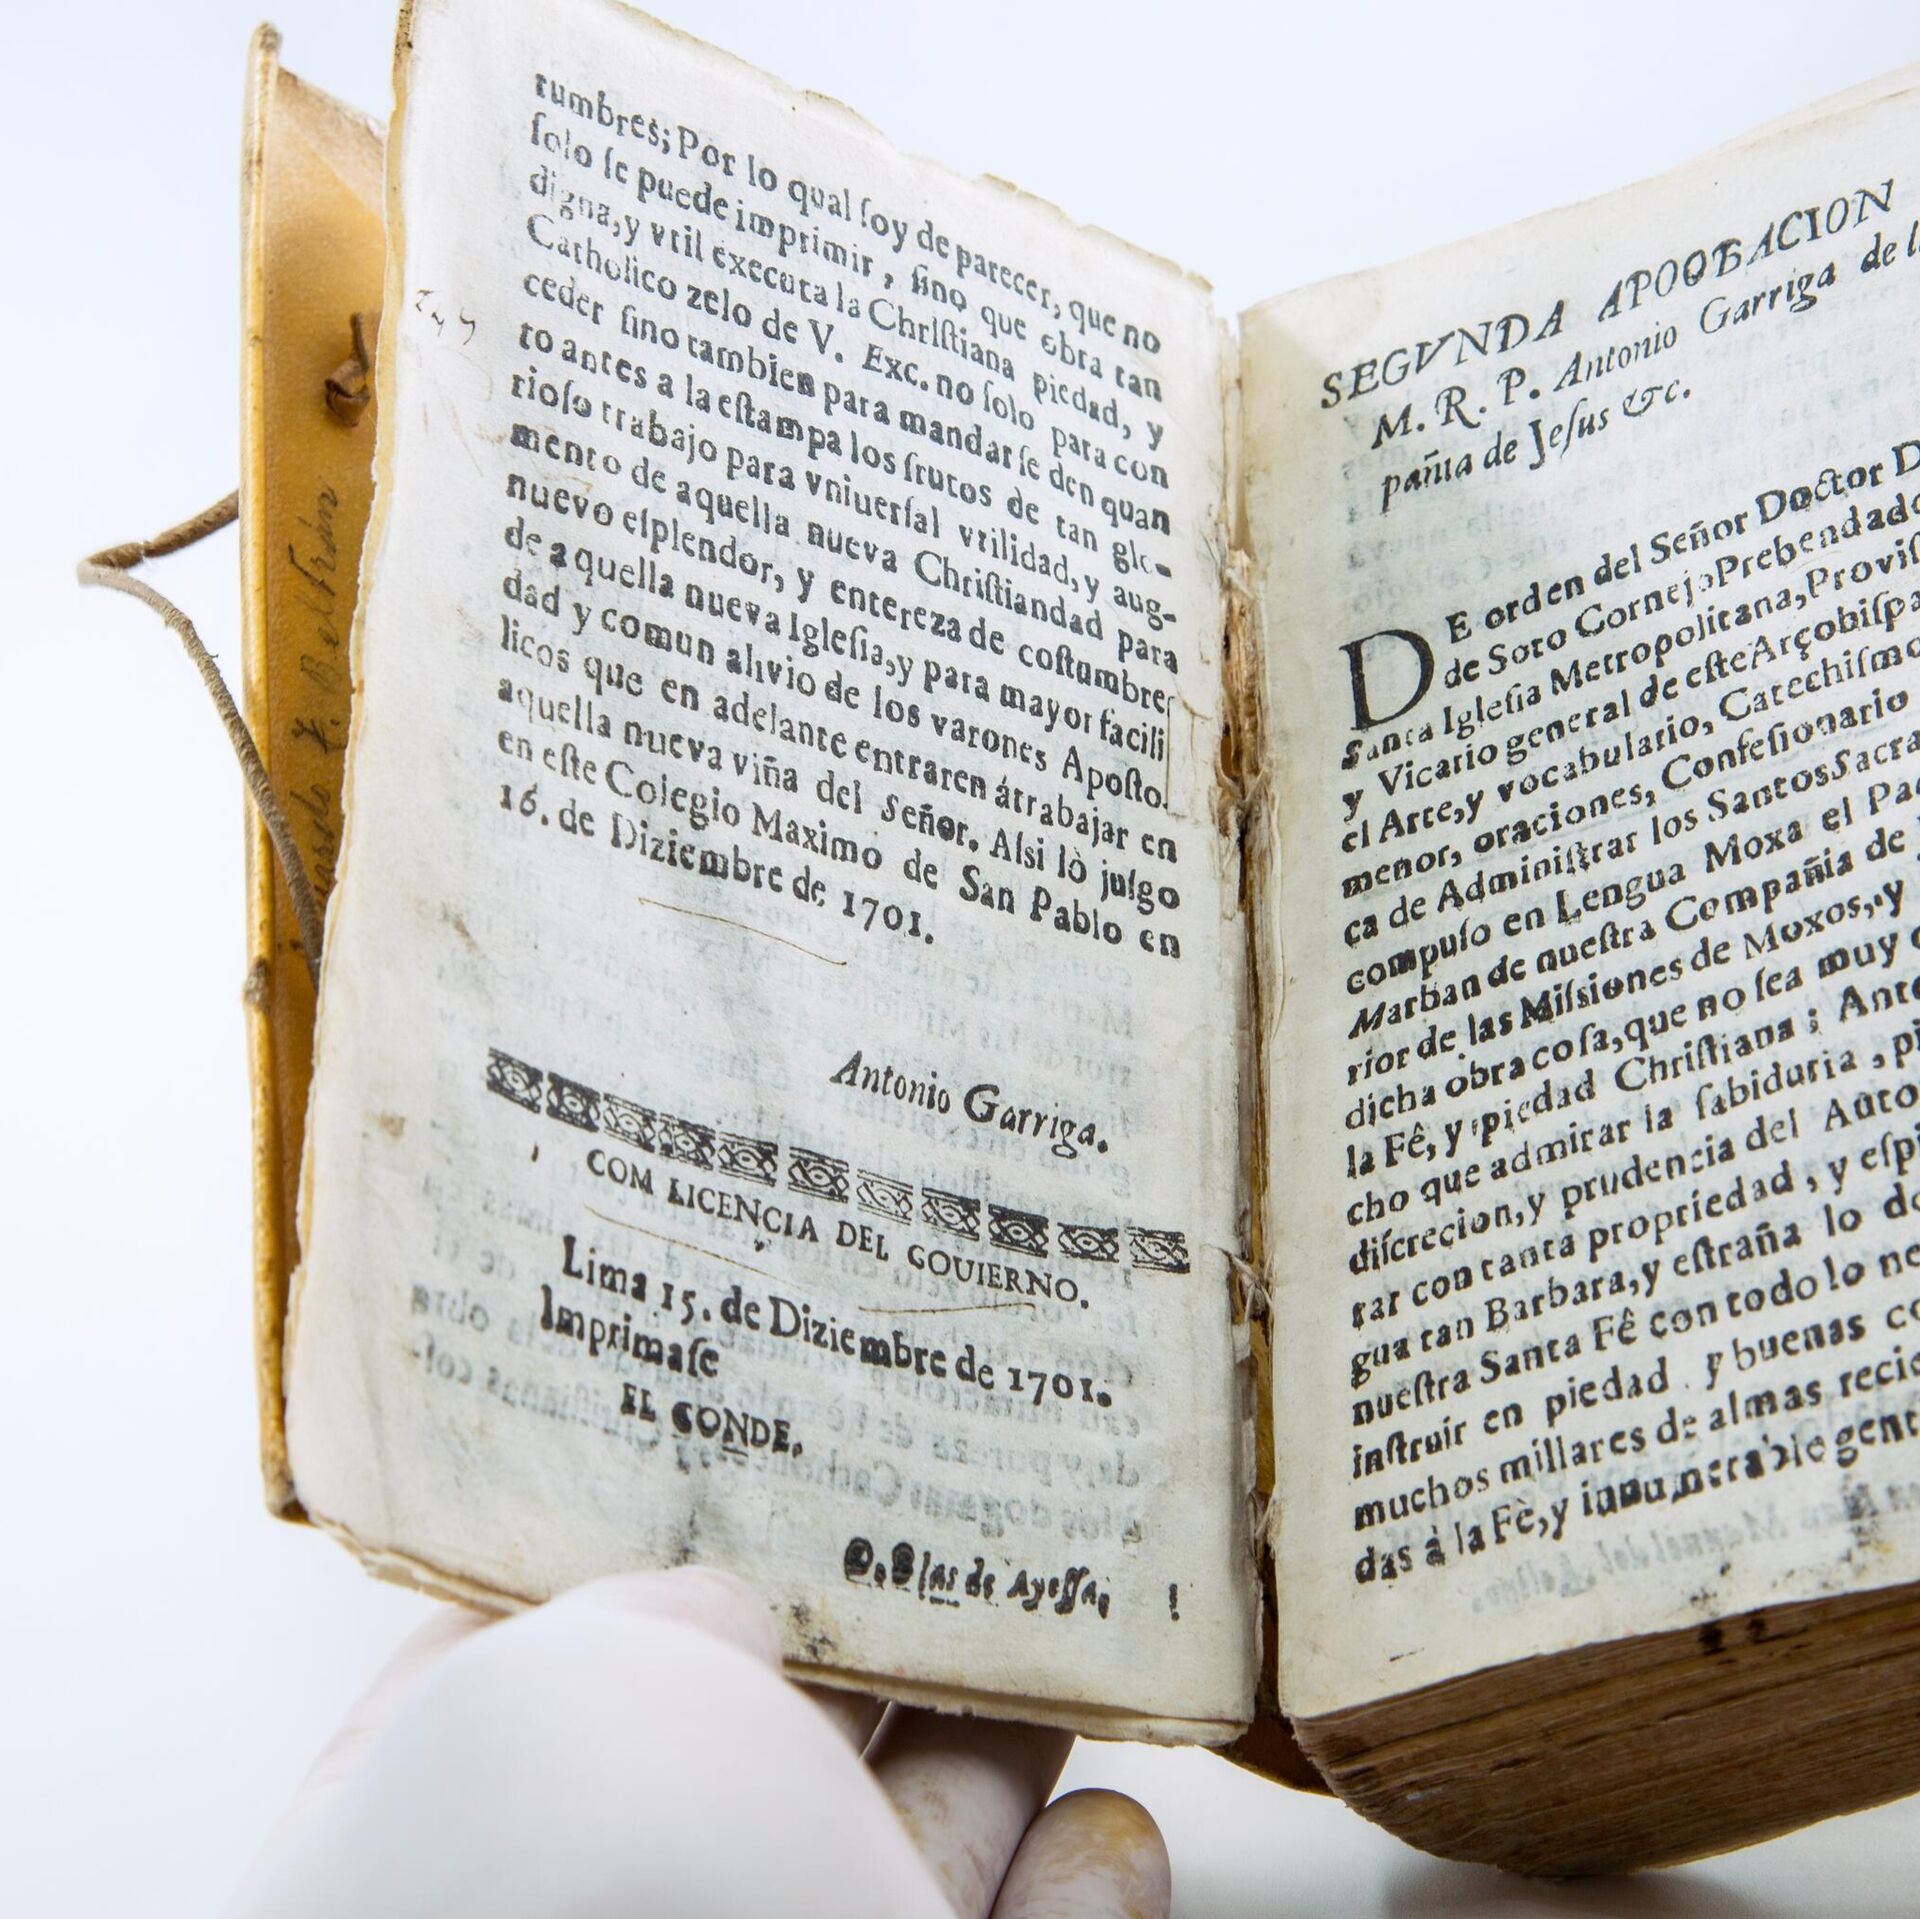 tumbres; Por lo qual ſoy de parecer, que no
ſolo ſe puede imprimir, ſino que obra tan
digna, y vtil executa la Chriſtiana piedad, y
Catholico zelo de V. Exc. no ſolo para con
ceder ſino tambien para mandar ſe den quan
to antes a la eſtampa los frutos de tan glo-
rioſo trabajo para vniuerſal vtilidad, y aug-
mento de aquella nueva Chriſtiandad para
nuevo eſplendor, y entereza de coſtumbres
de aquella nueva Igleſia, y para mayor facili
dad y comun alivio de los varones Apoſto-
licos que en adelante entraren á trabajar en
aquella nueva viña del Señor. Aſsi lò juſgo
en eſte Colegio Maximo de San Pablo en
16. de Diziembre de 1701.
Antonio Garriga.
COM LICENCIA DEL GOUIERNO.
Lima 15. de Diziembre de 1701.
Imprimaſe
EL CONDE.
D. Blas de Ayeſſa,
Beltrán
SEGVNDA APOOBACION
M. R. P. Antonio Garriga de
pañia de Jeſus &c.
DE orden del Señor Doctor
de Soto Cornejo Prebendado
Santa Igleſia Metropolitana,
y Vicario general de eſte
el Arte, y vocabulario, Catechiſmo
menor, oraciones, Confeſionario
ca de Adminiſtrar los Santos
compuſo en Lengua Moxa el
Marban de nueſtra Compañia de
rior de las Miſsiones de Moxos, y
dicha obra coſa, que no ſea muy
la Fê, y piedad Chriſtiana;
cho que admirar la ſabiduria,
diſcrecion, y prudencia del
rar con tanta propriedad, y
gua tan Barbara, y eſtraña lo
nueſtra Santa Fê con todo lo
inſtruir en piedad y buenas
muchos millares de almas
das à la Fè, y innumerable